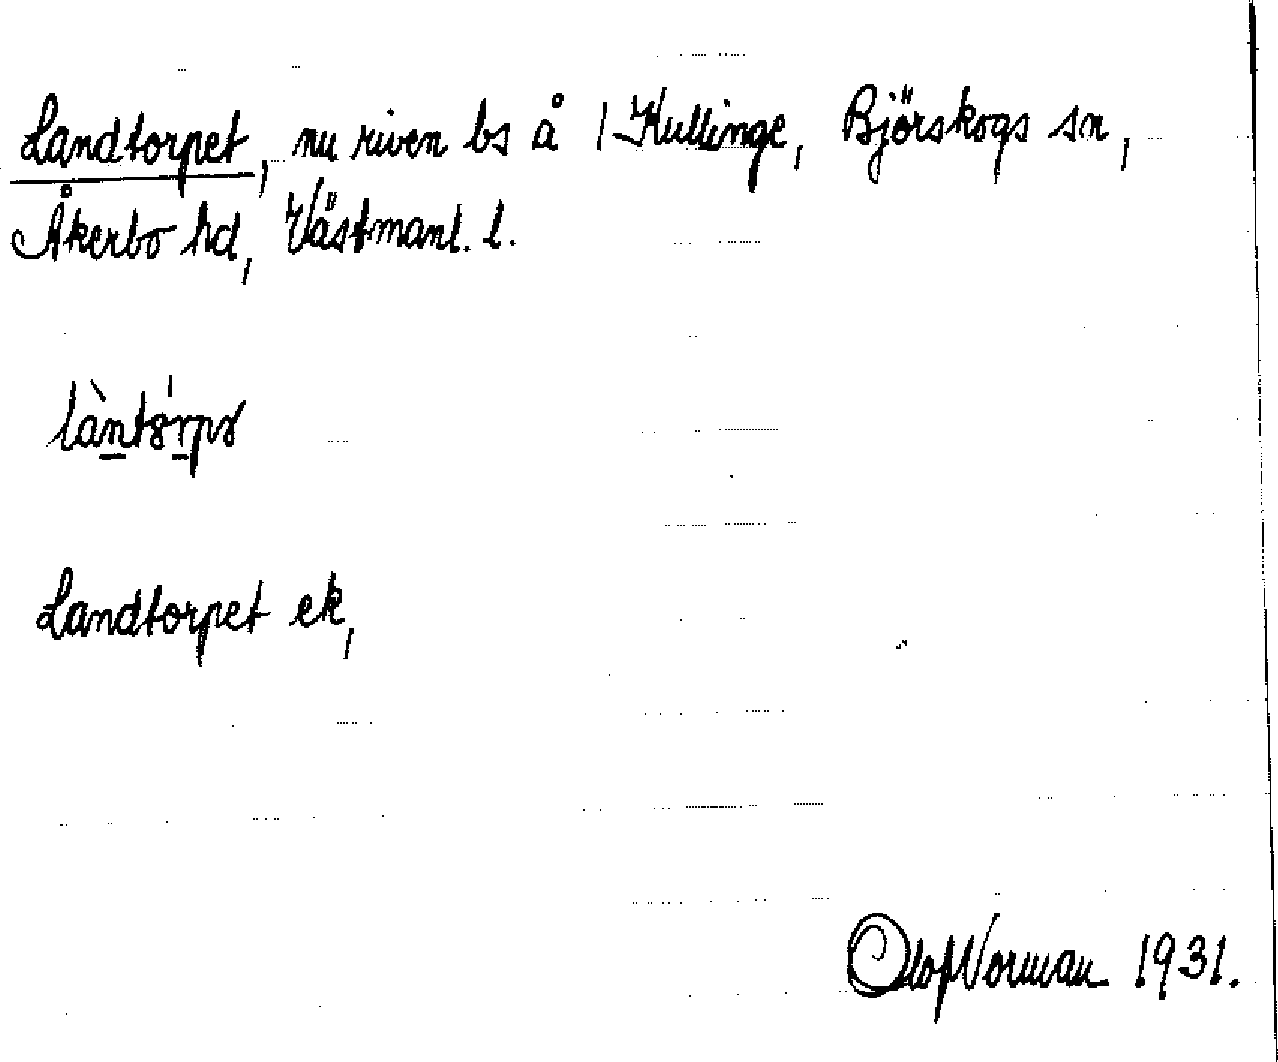 Landtorpet, nu riven bs å 1 Kullinge, Björskogs sn,
Åkerbo hd, Västmanl. l.
Landtorpet ek,
Olof Norman 1931.